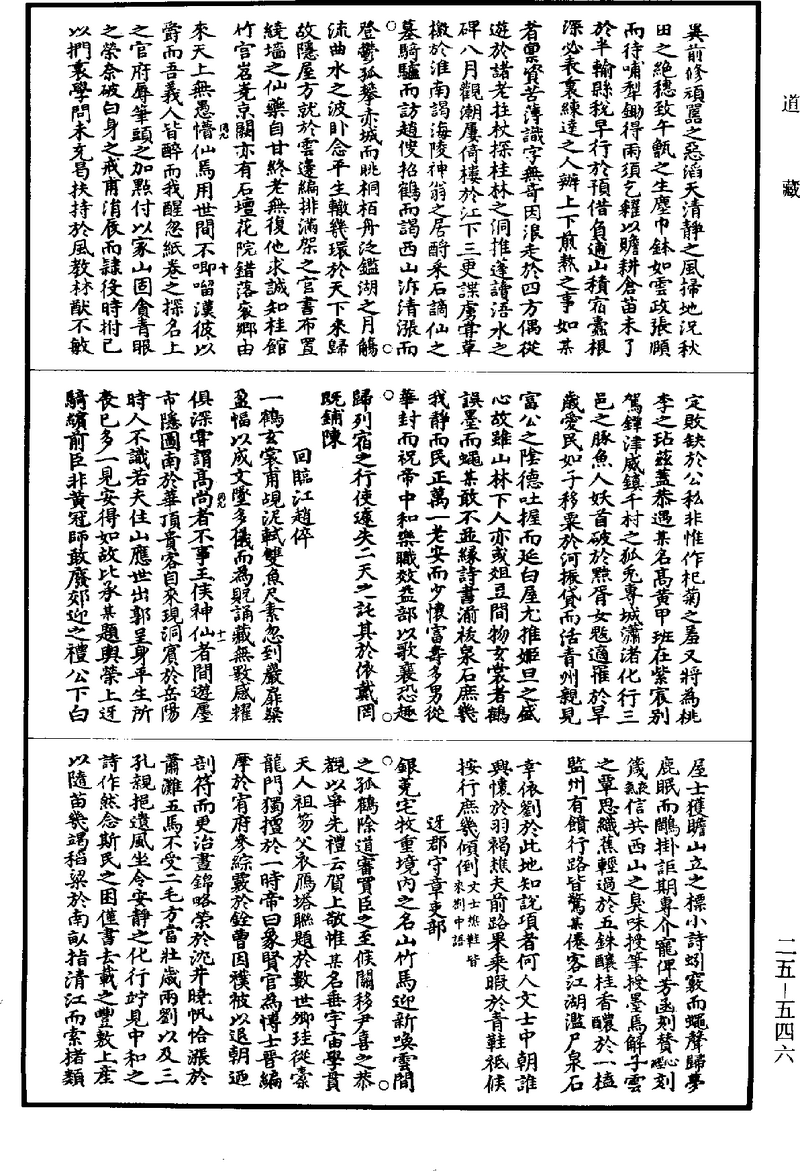 道藏
吳前修頑囂之惡滔天清靜之風掃地況秋
田之絶穗致午甑之生塵巾鉢如雲政張頤
而待哺犁鋤得雨須乞糴以贍耕倉苗未了
於半輸縣稅早行於預借負逋山積宿蠹根
深必表裏練達之人辦上下煎熬之事如某
者禀賢苦薄識字無奇因浪走於四方偶從
遊於諸老拄杖探桂林之洞推篷讀浯水之
碑八月觀潮屢倚樓於江下三更諜虜嘗草
檄於淮南謁海陵神翁之居酹采石謫仙之
墓騎驢而訪趙傁招鶴而謁西山泝清漲而
登鬱孤攀赤城而眺桐栢舟泛鑑湖之月觴
流曲水之波卧念平生轍幾環於天下來歸
故隱屋方就於雲邊編排滿架之官書布置
繞壇之仙藥自甘終老無復他求誠知桂館
竹宫岧嶤京闕亦有石壇花院錯落家鄉由
來天上無愚懵仙焉用世間不唧𠺕漢彼以
爵而吾義人皆醉而我醒忽紙卷之探名上
之官府辱筆頭之加點付以家山固貪青眼
之榮奈破白身之戒甫消辰而隸役時拊己
以捫裏學問未充曷扶持於風教材猷不敏
定敗缺於公私非惟作杞菊之羞又將為桃
李之玷茲蓋恭遇某名高黄甲班在紫宸别
駕鐔津威鎮千村之狐兎專城瀟渚化行三
邑之豚魚人妖首破於黠胥女魃適罹於旱
歲愛民如子移粟於河振貸而活青州親見
富公之隂德吐握而延白屋尤推姬旦之盛
心故雖山林下人亦或俎豆間物玄裳者鶴
誤墨而蠅某敢不並緣詩書湔祓泉石庶幾
我靜而民正萬一老安而少懷富壽多男從
華封而祝帝中和樂職效益部以歌襄恐趣
歸列宿之行使遽失二天之託其於依戴罔
既鋪陳
回臨江趙倅
一鶴玄裳甫覘泥軾雙魚尺素忽到嚴扉粲
盈幅以成文墮多儀而為貺誦藏無斁感耀
俱深嘗謂高尚者不事王侯神仙者間遊廛
市隱圖南於華頂貴客自來現洞賓於岳陽
時人不識若夫住山應世出郭呈身平生所
喪已多一見安得如故比承某題輿榮上迓
騎繽前臣非黄冠師敢廢郊迎之禮公下白
屋士獲瞻山立之標小詩蚓竅而蠅聲歸夢
鹿眠而鵰掛詎期專介寵俾芳函刻賛心刻
箴信共西山之臭味授筆授墨焉解子雲
之覃思織蕉輕過於五銖釀桂香醲於一榼
監州有饋行路皆驚某倦客江湖濫尸泉石
幸依劉於此地知說項者何人文士中朝誰
興懷於羽褐樵夫前路果乘暇於青鞋祗候
按行庶幾傾倒文士樵鞋皆來劄中語
迓郡守章吏部
銀莵宅牧重境内之名山竹馬迎新喚雲間
之孤鶴除道審買臣之至候關移尹喜之恭
觀以爭先禮云賀上敬惟某名垂宇宙學貫
天人祖笏父衣鴈塔聮題於數世卿珪從橐
龍門獨擅於一時帝曰象賢官為博士晉編
摩於宥府參綜覈於銓曹因襆被以退朝迺
剖符而更治畫錦略榮於沇井曉帆恰漲於
蕭灘五馬不受二毛方當壯歲兩劉以及三
孔親挹遺風坐令安靜之化行竚見中和之
詩作然念斯民之困僅書去載之豐數上産
以隨苗幾竭稻粱於南畝指清江而索楮類
二五—五四六